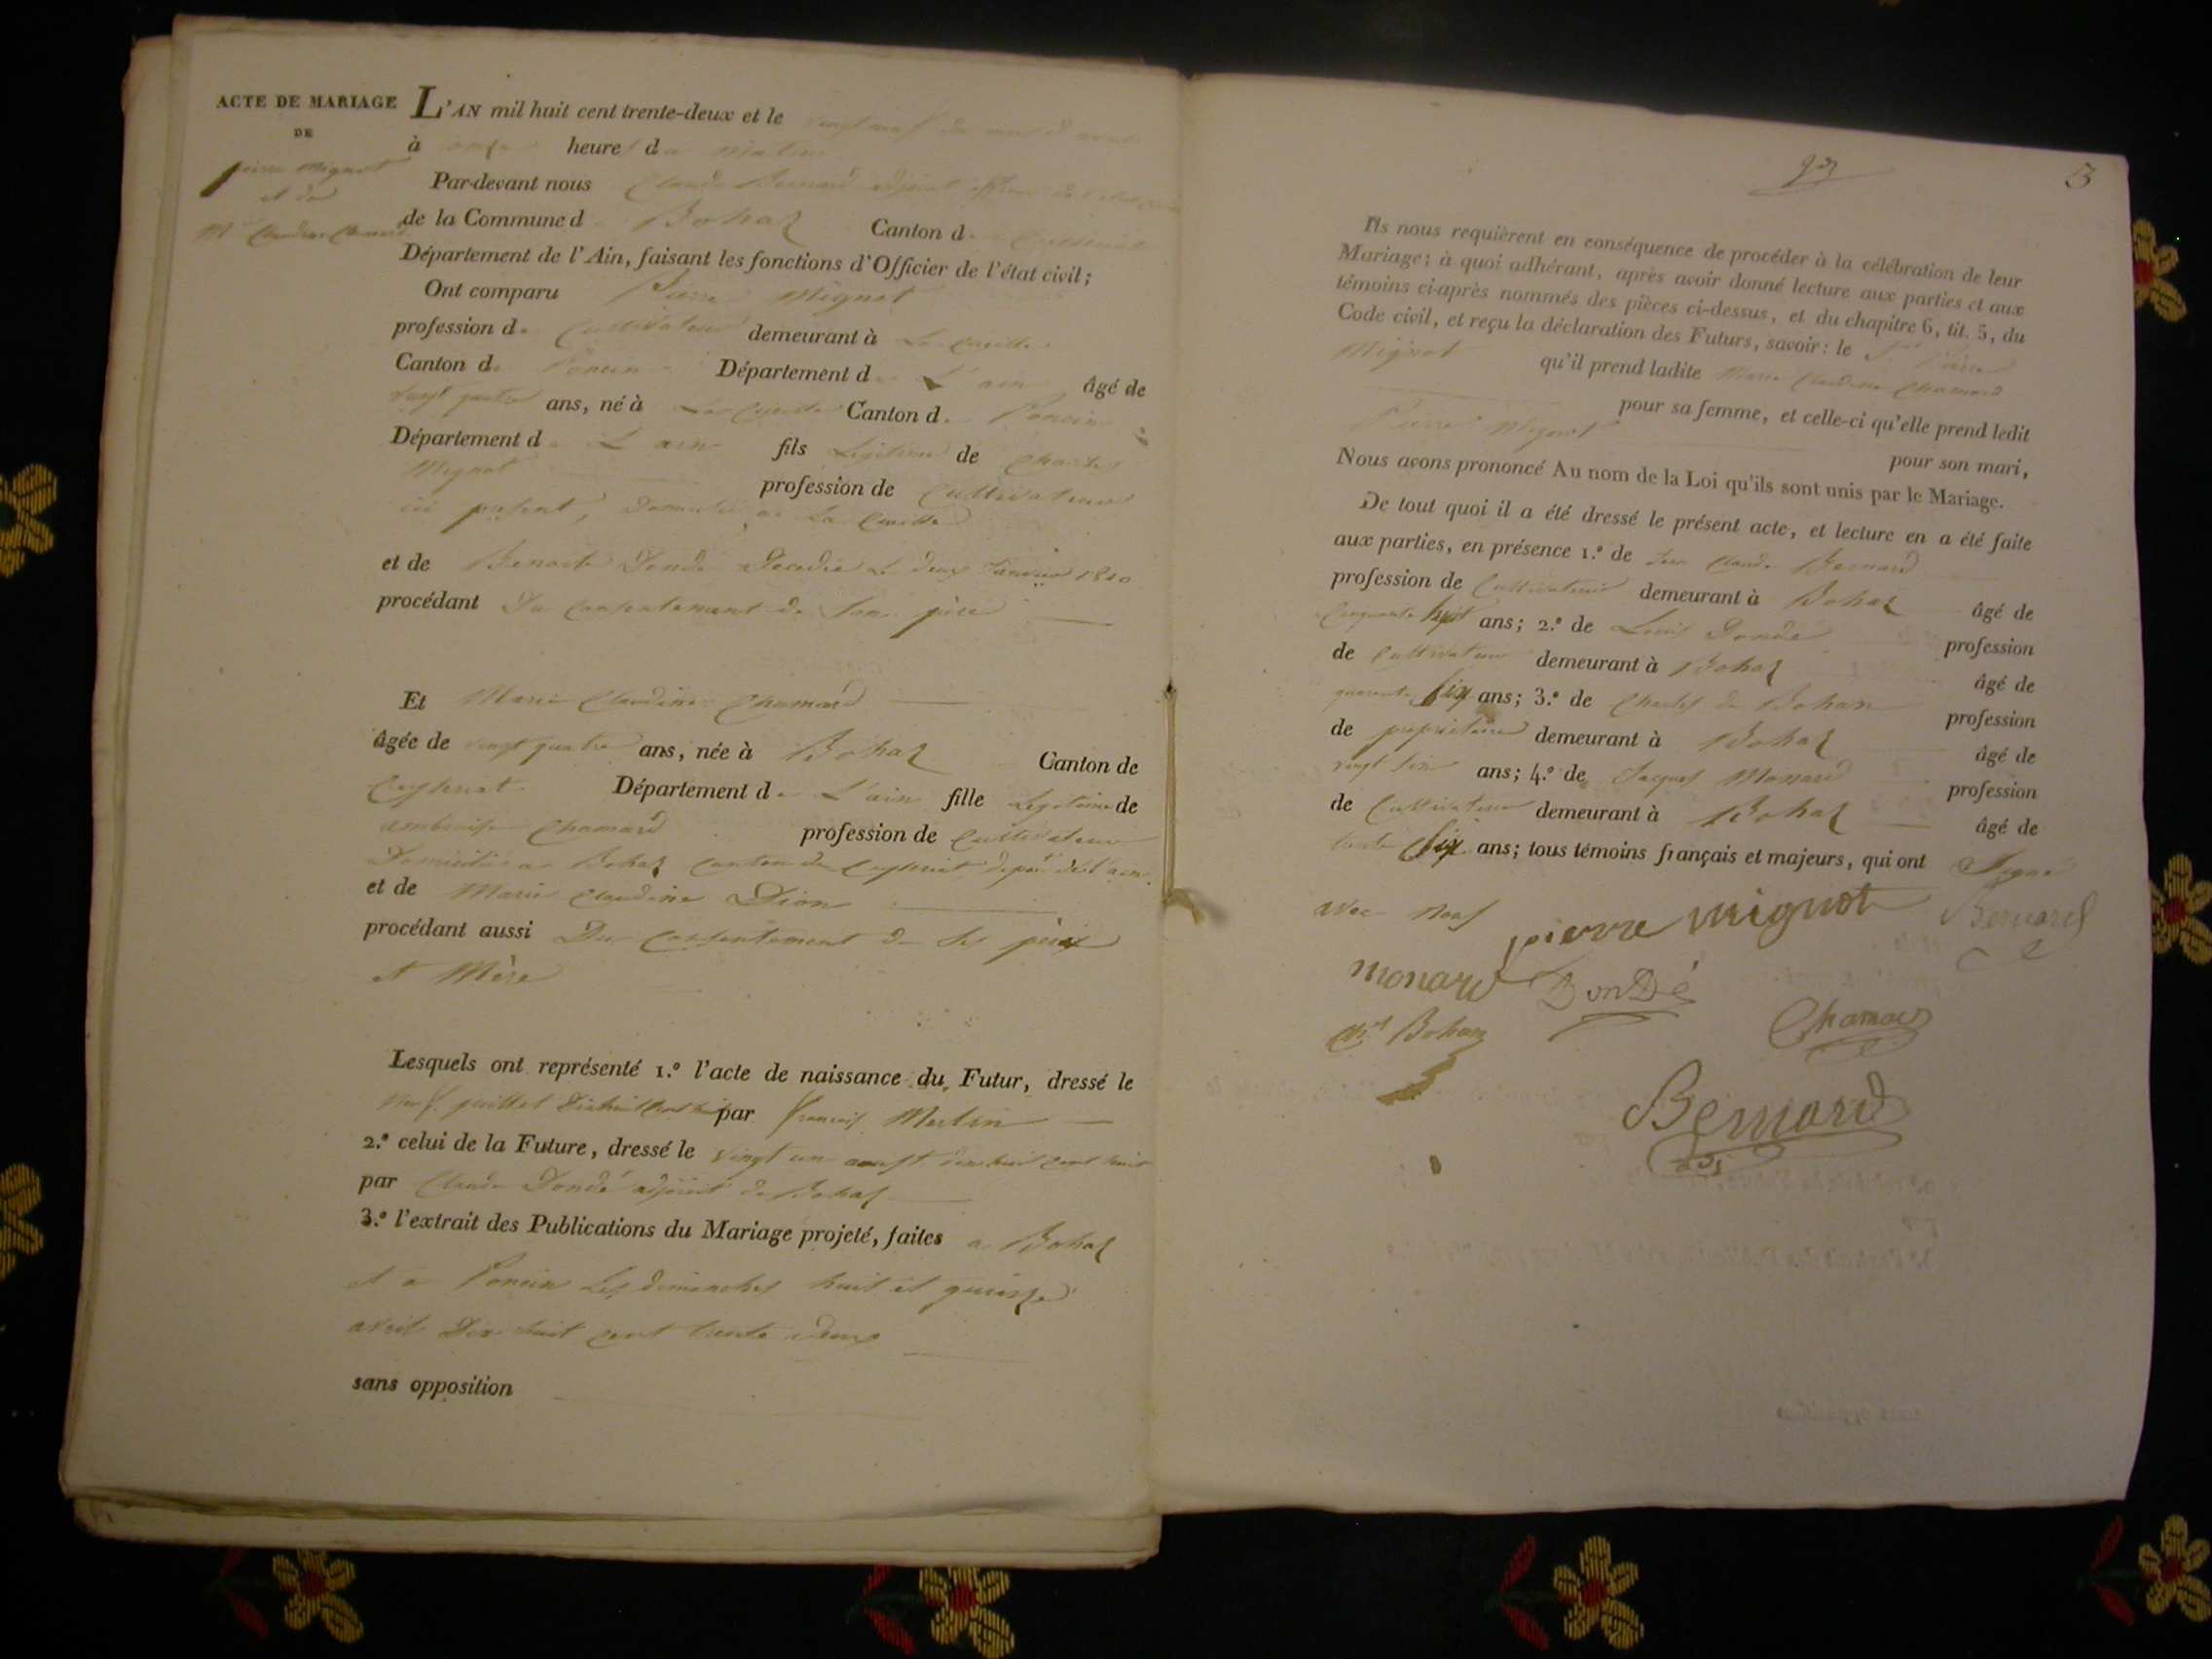 ACTE DE MARIAGE
DE
pierre Mignot
et de
Mie Claudine Chamard
L'AN mil huit cent trente-deux et le vingt neuf du mois d'avril
à onze heures du matin
Par-devant nous Claude Bernard adjoint officier de l'état civil
de la Commune d Bohas Canton d
Département de l'Ain, faisant les fonctions d'Officier de l'état civil;
Ont comparu Pierre Mignot
profession de Cultivateur demeurant à La Cueille
Canton de Poncin Département d L'ain âgé de
vingt quatre ans, né à La Cueille Canton de Poncin
Département de L'ain fils Légitime de Charles
Mignot profession de Cultivateur
ici présent, Domicilié a La Cueille
et de Benoite Donde Decedée le deux Janvier 1810
procédant Du Consentement de Son père
Et Marie Claudine Chamard
âgée de vingt quatre ans, née à Bohas Canton de
Ceyseriat Département de L'ain fille Legitime de
ambroise Chamard profession de Cultivateur
Domicilié a Bohas Canton de Ceyseriat depart de l'ain
et de Marie Claudine Dion
procédant aussi Du Consentement de Ses père
et Mère
Lesquels ont représenté 1.º l'acte de naissance du Futur, dressé le
neuf juillet Dixhuit Cent huit par francois Merlin
2.º celui de la Future, dressé le vingt un aoust dix huit cent huit
par Claude Dondé adjoint de Bohas
3.º l'extrait des Publications du Mariage projeté, faites a Bohas
et a Poncin Les dimanches huit et quinze
avril Dix huit cent trente deux
sans opposition
93
B
Ils nous requièrent en conséquence de procéder à la célébration de leur
Mariage; à quoi adhérant, après avoir donné lecture aux parties et aux
témoins ci-après nommés des pièces ci-dessus, et du chapitre 6, tit. 5, du
Code civil, et reçu la déclaration des Futurs, savoir: le S. Pierre
Mignot qu'il prend ladite Marie Claudine Chamard
pour sa femme, et celle-ci qu'elle prend ledit
Pierre Mignot pour son mari,
Nous avons prononcé Au nom de la Loi qu'ils sont unis par le Mariage.
De tout quoi il a été dressé le présent acte, et lecture en a été faite
aux parties, en présence 1.º de Jean Claude Bernard
profession de Cultivateur demeurant à Bohas âgé de
Cinquante Sept ans; 2.º de Louis Donde profession
de Cultivateur demeurant à Bohas âgé de
quarante six ans; 3.º de Charles de Bohan profession
de propriétaire demeurant à Bohas âgé de
vingt six ans; 4.º de Jacques Monard profession
de Cultivateur demeurant à Bohas âgé de
trente six ans; tous témoins français et majeurs, qui ont Signé
avec Nous pierre mignot Bernard
monard DonDé
Ch.s Bohan Chamard
Bernard
adj